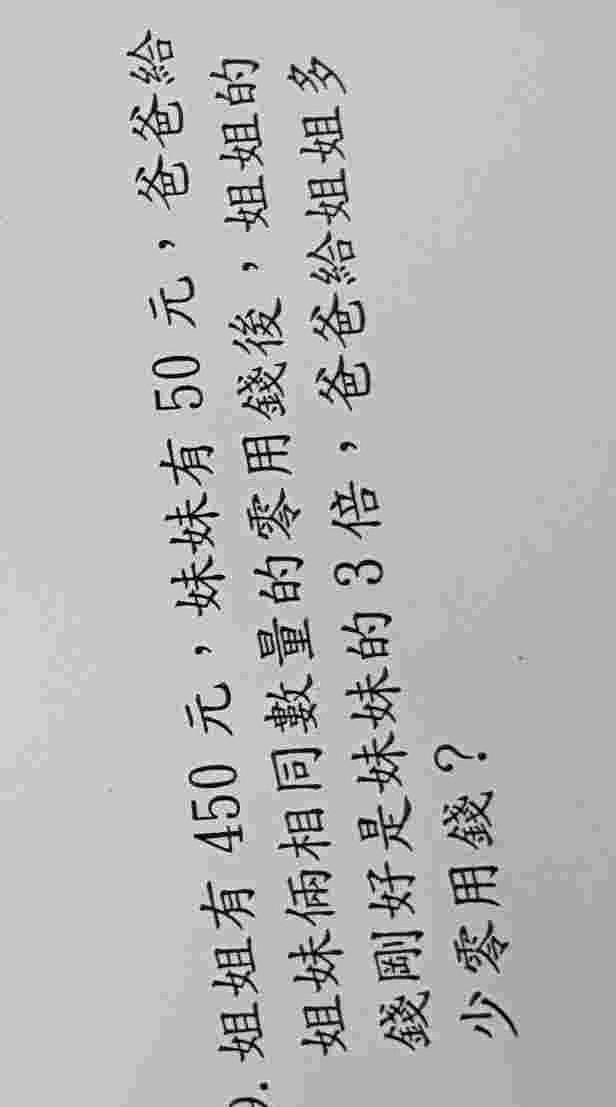 9. 姐姐有 450 元，妹妹有 50 元，爸爸給
姐妹倆相同數量的零用錢後，姐姐的
錢剛好是妹妹的 3 倍，爸爸給姐姐多
少零用錢？